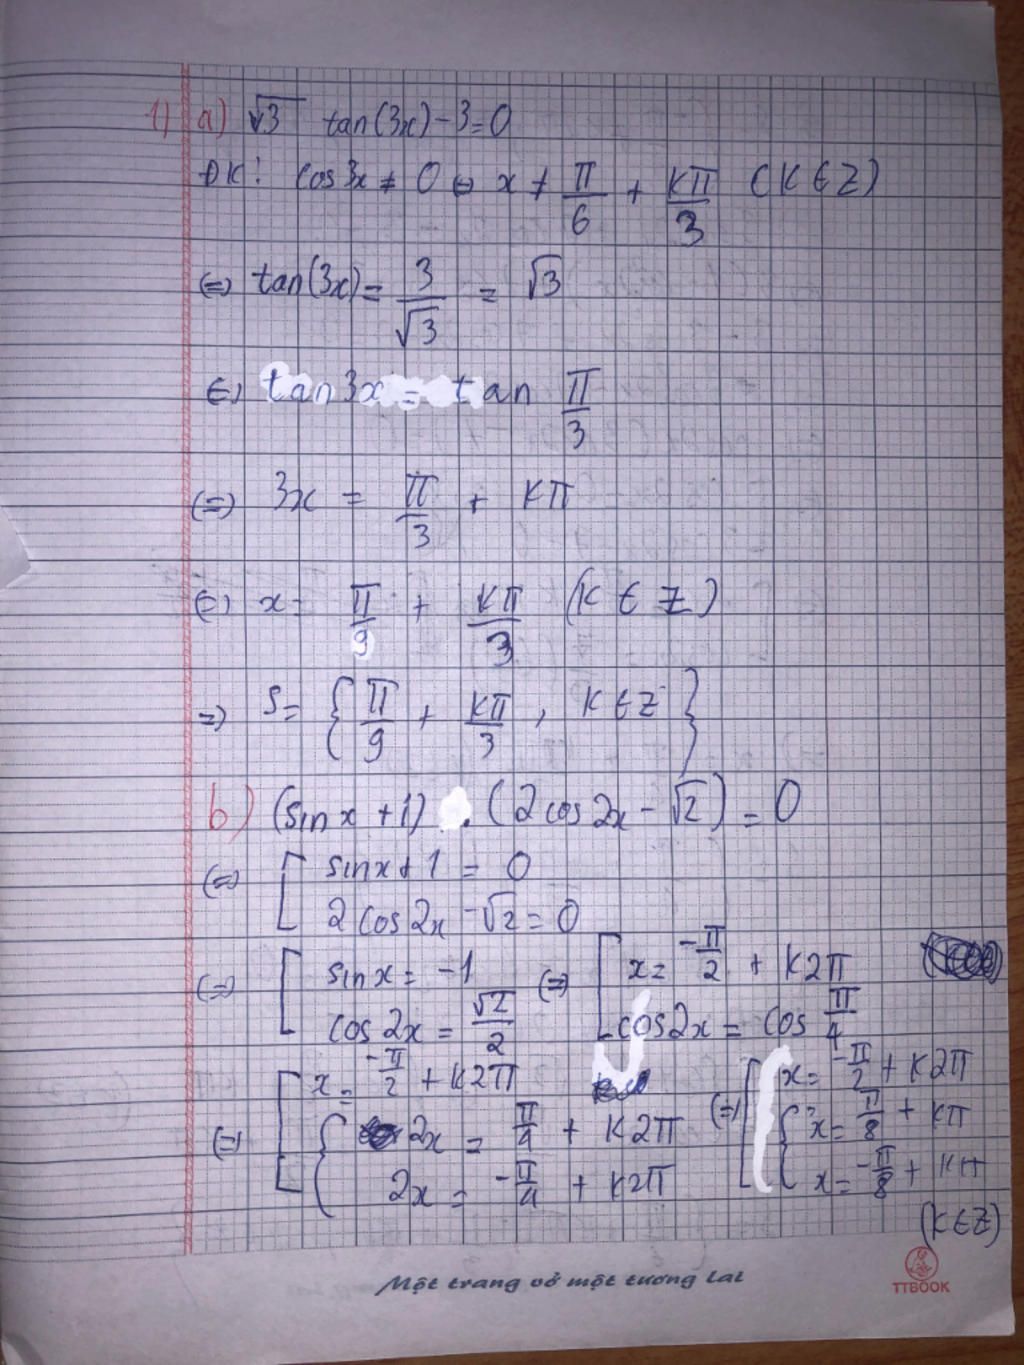 1) a) √3 tan(3x) - 3 = 0
ĐK: cos3x ≠ 0 ⇔ x ≠ π/6 + kπ/3 (K ∈ Z)
⇔ tan(3x) = 3/√3 = √3
⇔ tan 3x = tan π/3
⇔ 3x = π/3 + Kπ
⇔ x = π/9 + Kπ/3 (K ∈ Z)
⇒ S = { π/9 + Kπ/3 , K ∈ Z }
b) (sin x + 1) . (2 cos 2x - √2) = 0
⇔ [ sin x + 1 = 0
2 cos 2x - √2 = 0
⇔ [ sin x = -1 ⇔ [ x = -π/2 + K2π
cos 2x = √2/2 cos 2x = cos π/4
⇔ [ x = -π/2 + K2π ⇔ [ x = -π/2 + K2π
{ 2x = π/4 + K2π { x = π/8 + Kπ
2x = -π/4 + K2π x = -π/8 + Kπ
(K ∈ Z)
Một trang vở một tương lai
TTBOOK